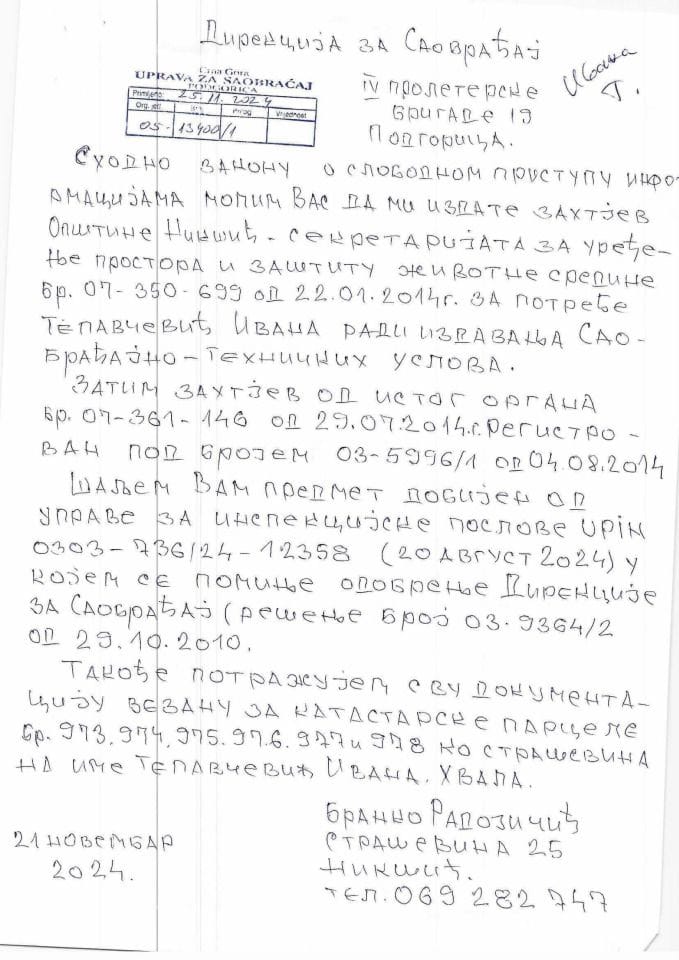 Дирекција за Саобраћај
Ивана
Т.
Crna Gora
UPRAVA ZA SAOBRAĆAJ
PODGORICA
Primljeno: 25.11.2024
Org. jed. Broj Prilog Vrijednost
05- 13400/1
IV пролетерске
бригаде 19
Подгорица.
Сходно закону о слободном приступу инфо-
рмацијама молим Вас да ми издате захтјев
Општине Никшић - секретаријата за уређе-
ње простора и заштиту животне средине
бр. 07-350-699 од 22.01.2014г. за потребе
Тепавчевић Ивана ради издавања Сао-
браћајно-техничких услова.
Затим захтјев од истог органа
бр. 07-361-146 од 29.07.2014.г. регистро-
ван под бројем 03-5996/1 од 04.08.2014
Шаљем Вам предмет добијен од
управе за инспекцијске послове UPIN
0303-736/24-12358 (20 август 2024) у
којем се помиње одобрење Дирекције
за Саобраћај (решење број 03-9364/2
од 29.10.2010.
Такође потражујем сву документа-
цију везану за катастарске парцеле
бр. 973, 974, 975. 976. 977 и 978 ко Страшевина
на име Тепавчевић Ивана. Хвала.
Бранко Радозичић
Страшевина 25
Никшић.
тел. 069 282 747
21 новембар
2024.